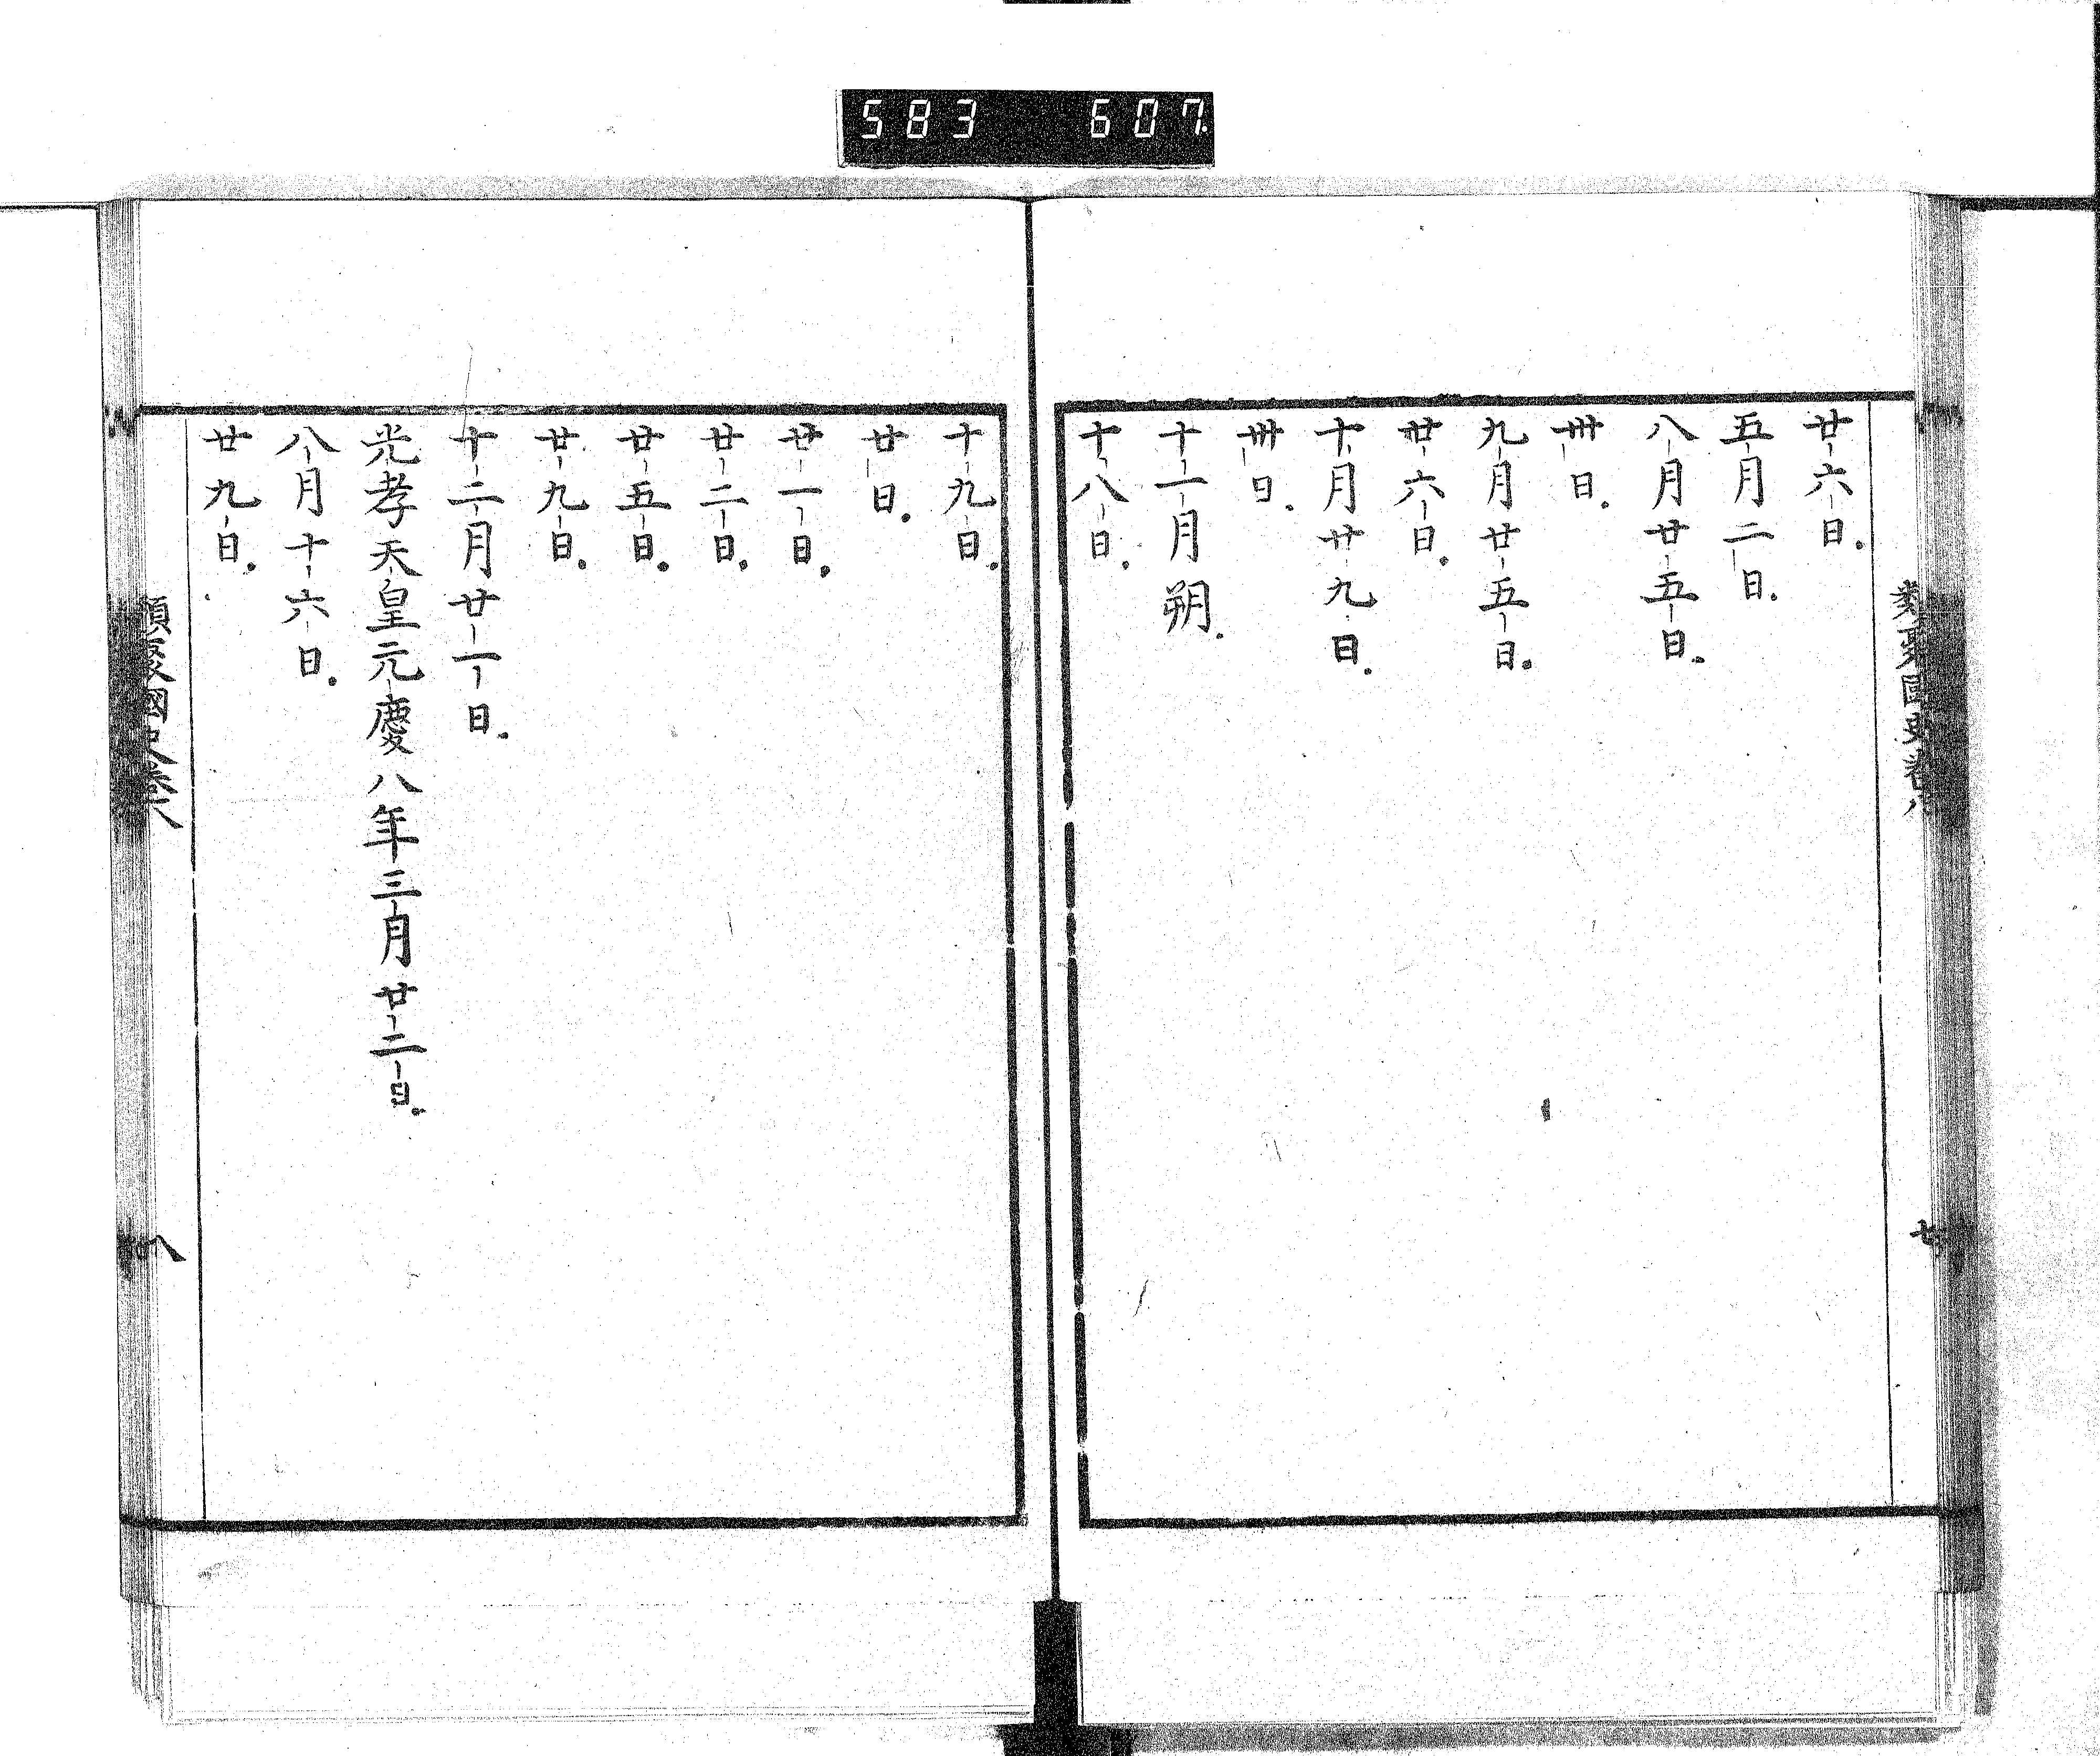 583 607
類聚國史卷八
七
廿六日.
五月二日.
八月廿五日.
卅日.
九月廿五日.
廿六日.
十月廿九日.
卅日.
十一月朔.
十八日.
十九日.
廿日.
廿一日.
廿二日.
廿五日.
廿九日.
十二月廿一日.
光孝天皇元慶八年三月廿二日.
八月十六日.
廿九日.
類聚國史卷八
八